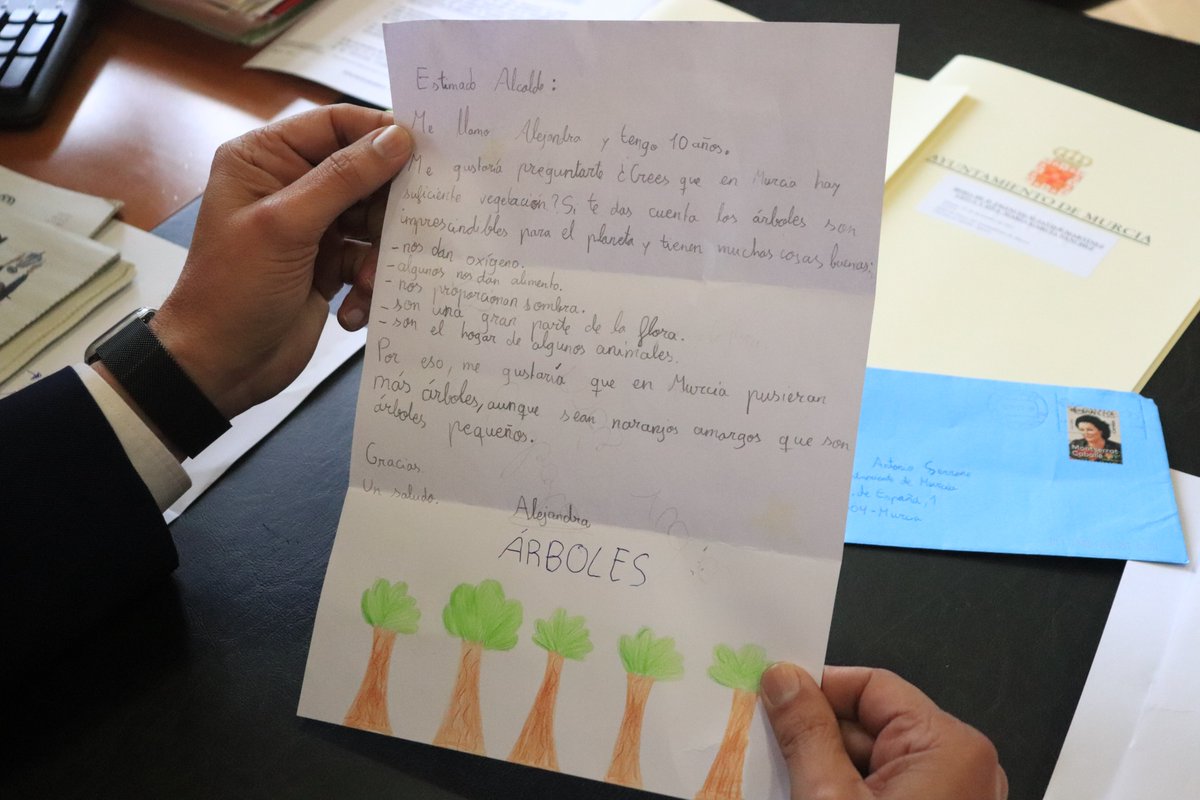 Estimado Alcalde:
Me llamo Alejandra y tengo 10 años.
Me gustaría preguntarte ¿Crees que en Murcia hay
suficiente vegetación? Si te das cuenta los árboles son
imprescindibles para el planeta y tienen muchas cosas buenas:
- nos dan oxígeno.
- algunos nos dan alimento.
- nos proporcionan sombra.
- son una gran parte de la flora.
- son el hogar de algunos animales.
Por eso, me gustaría que en Murcia pusieran
más árboles, aunque sean naranjos amargos que son
árboles pequeños.
Gracias
Un saludo.
Alejandra
ÁRBOLES
AYUNTAMIENTO DE MURCIA
Montserrat
Caballé
Antonio Serrano
de Murcia
. de España, 1
04-Murcia